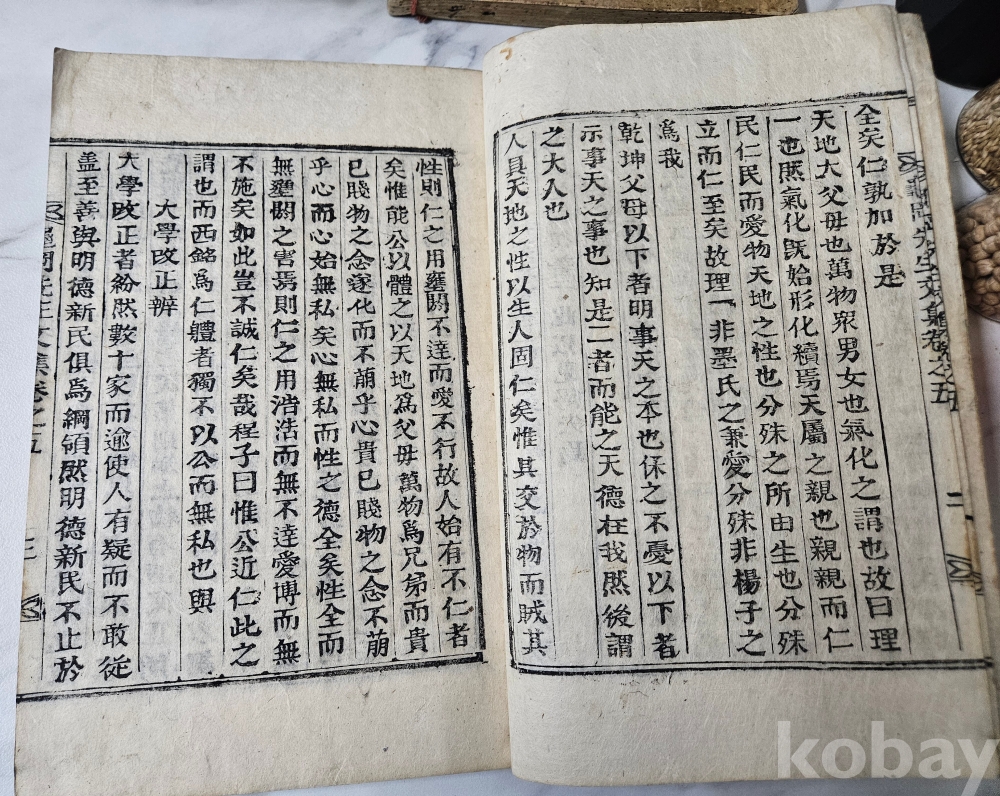 先生文集卷之五 二
全矣仁孰加於是
天地大父母也萬物衆男女也氣化之謂也故曰理
一也然氣化旣始形化續焉天屬之親也親親而仁
民仁民而愛物天地之性也分殊之所由生也分殊
立而仁至矣故理一非墨氏之兼愛分殊非楊子之
爲我
乾坤父母以下者明事天之本也保之不憂以下者
示事天之事也知是二者而能之天德在我然後謂
之大人也
人具天地之性以生人固仁矣惟其交於物而賊其
性則仁之用壅閼不達而愛不行故人始有不仁者
矣惟能公以體之以天地爲父母萬物爲兄弟而貴
已賤物之念遂化而不萠乎心貴已賤物之念不萠
乎心而心始無私矣心無私而性之德全矣性全而
無壅閼之害焉則仁之用浩浩而無不達愛博而無
不施矣如此豈不誠仁矣哉程子曰惟公近仁此之
謂也而西銘爲仁體者獨不以公而無私也與
大學改正辨
大學改正者紛然數十家而逾使人有疑而不敢從
盖至善與明德新民俱爲綱領然明德新民不止於
先生文集卷之五 三
kobay